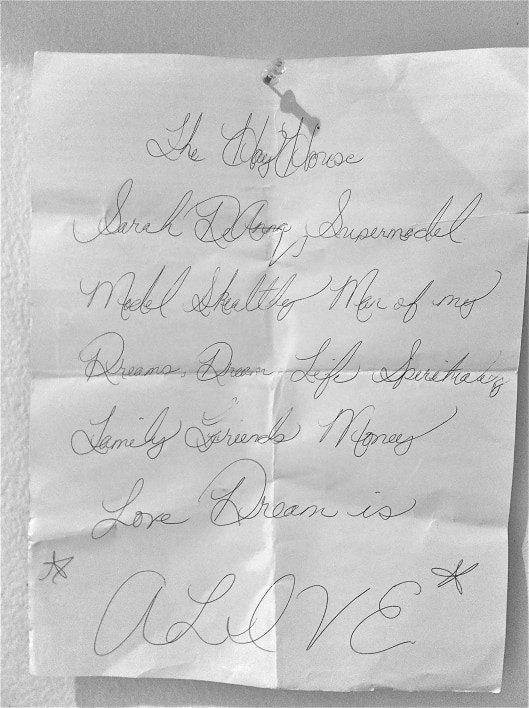 The Hay House
Sarah DeAnna, Supermodel
Model Healthy Man of my
Dreams, Dream Life Spirituality
Family Friends Money
Love Dream is
* ALIVE *